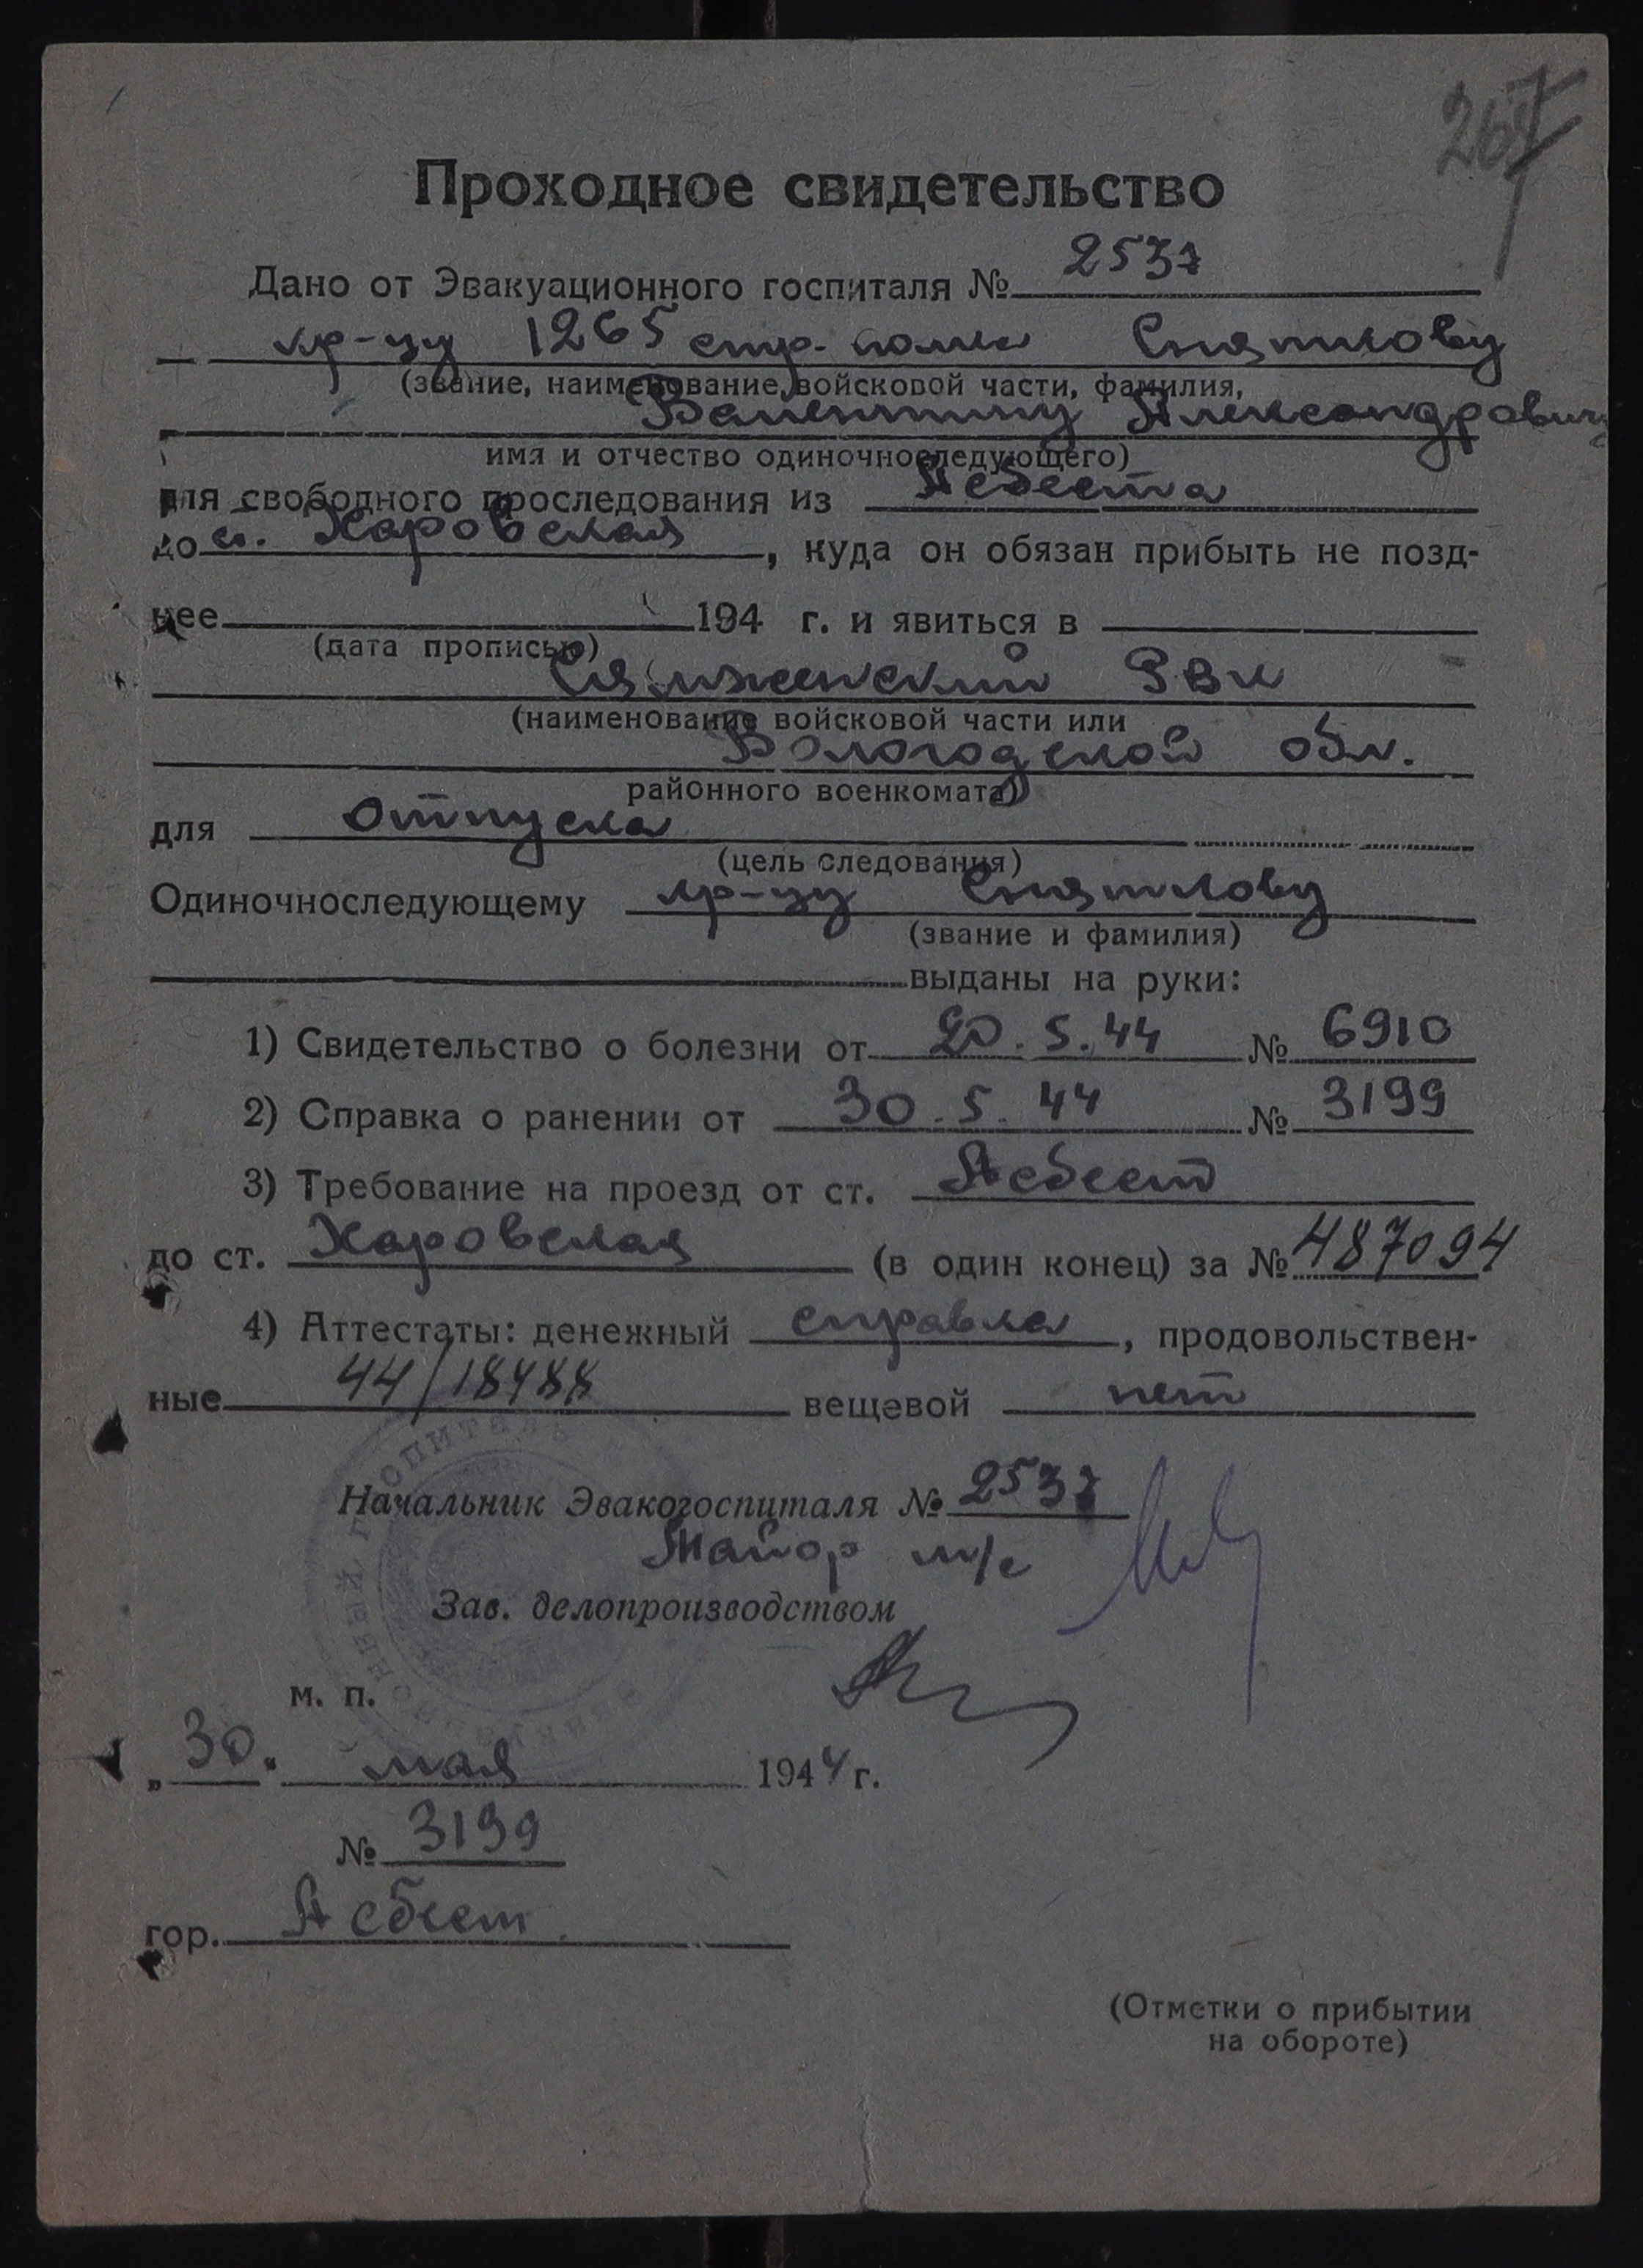 267
Проходное свидетельство
Дано от Эвакуационного госпиталя № 2537
кр-цу 1265 стр. полка Сняткову
(звание, наименование войсковой части, фамилия,
Валентину Александрович
имя и отчество одиночноследующего)
для свободного проследования из Асбеста
до ст. Харовская, куда он обязан прибыть не позд-
нее 194 г. и явиться в
(дата прописью)
Сямженский РВК
(наименование войсковой части или
Вологодской обл.
районного военкомата)
для отпуска
(цель следования)
Одиночноследующему кр-цу Сняткову
(звание и фамилия)
выданы на руки:
1) Свидетельство о болезни от 20.5.44 № 6910
2) Справка о ранении от 30.5.44 № 3199
3) Требование на проезд от ст. Асбест
до ст. Харовская (в один конец) за № 487094
4) Аттестаты: денежный справка, продовольствен-
ные 44/18488 вещевой нет
Начальник Эвакогоспиталя № 2537
Майор м/с
Зав. делопроизводством
м. п.
„30“ мая 1944 г.
№ 3199
гор. Асбест
(Отметки о прибытии
на обороте)